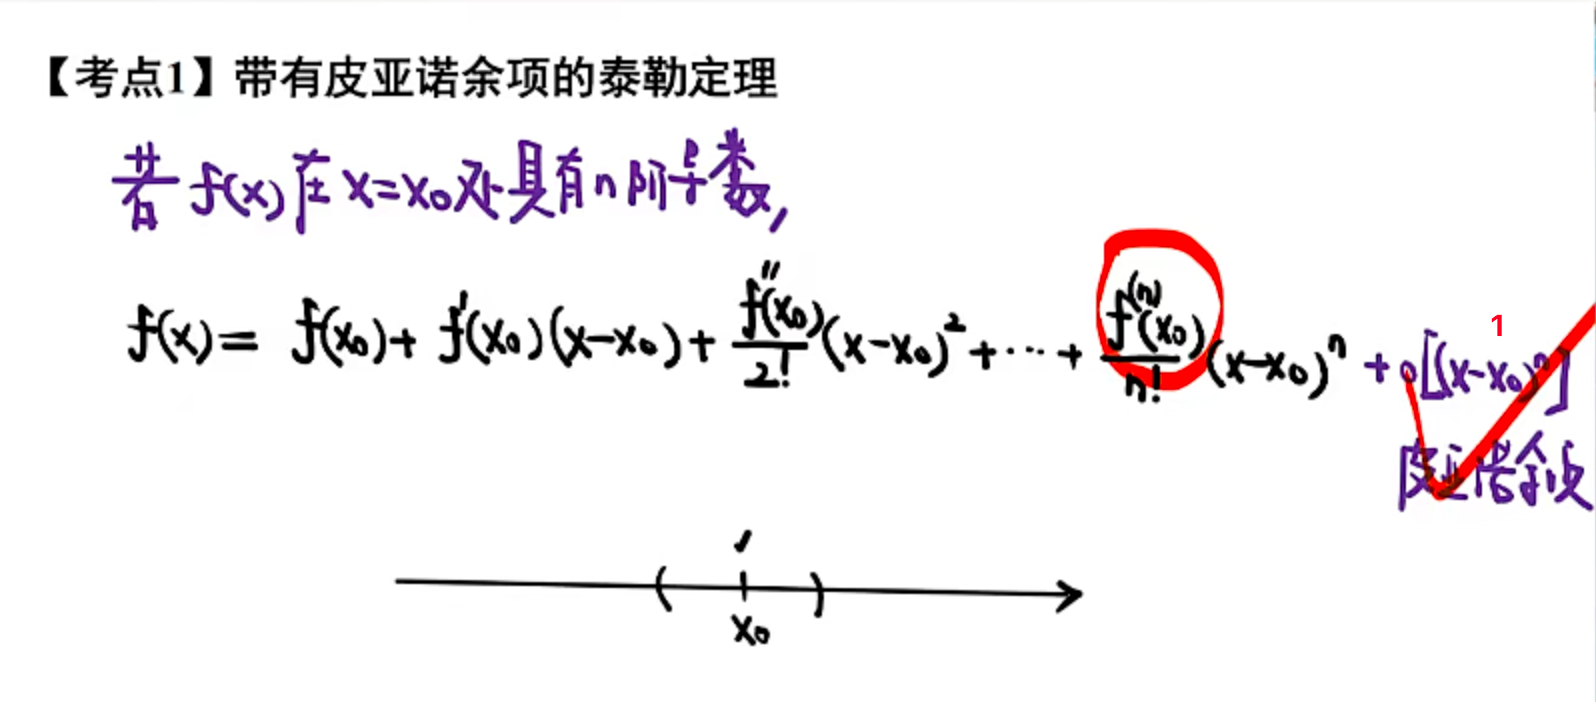 【考点1】带有皮亚诺余项的泰勒定理
若 f(x) 在 x=x₀ 处具有 n 阶导数,
f(x) = f(x₀) + f'(x₀)(x-x₀) + f''(x₀)/2! (x-x₀)² + ⋯ + f⁽ⁿ⁾(x₀)/n! (x-x₀)ⁿ + o[(x-x₀)ⁿ]
1
皮亚诺余项
( ✓ )
x₀